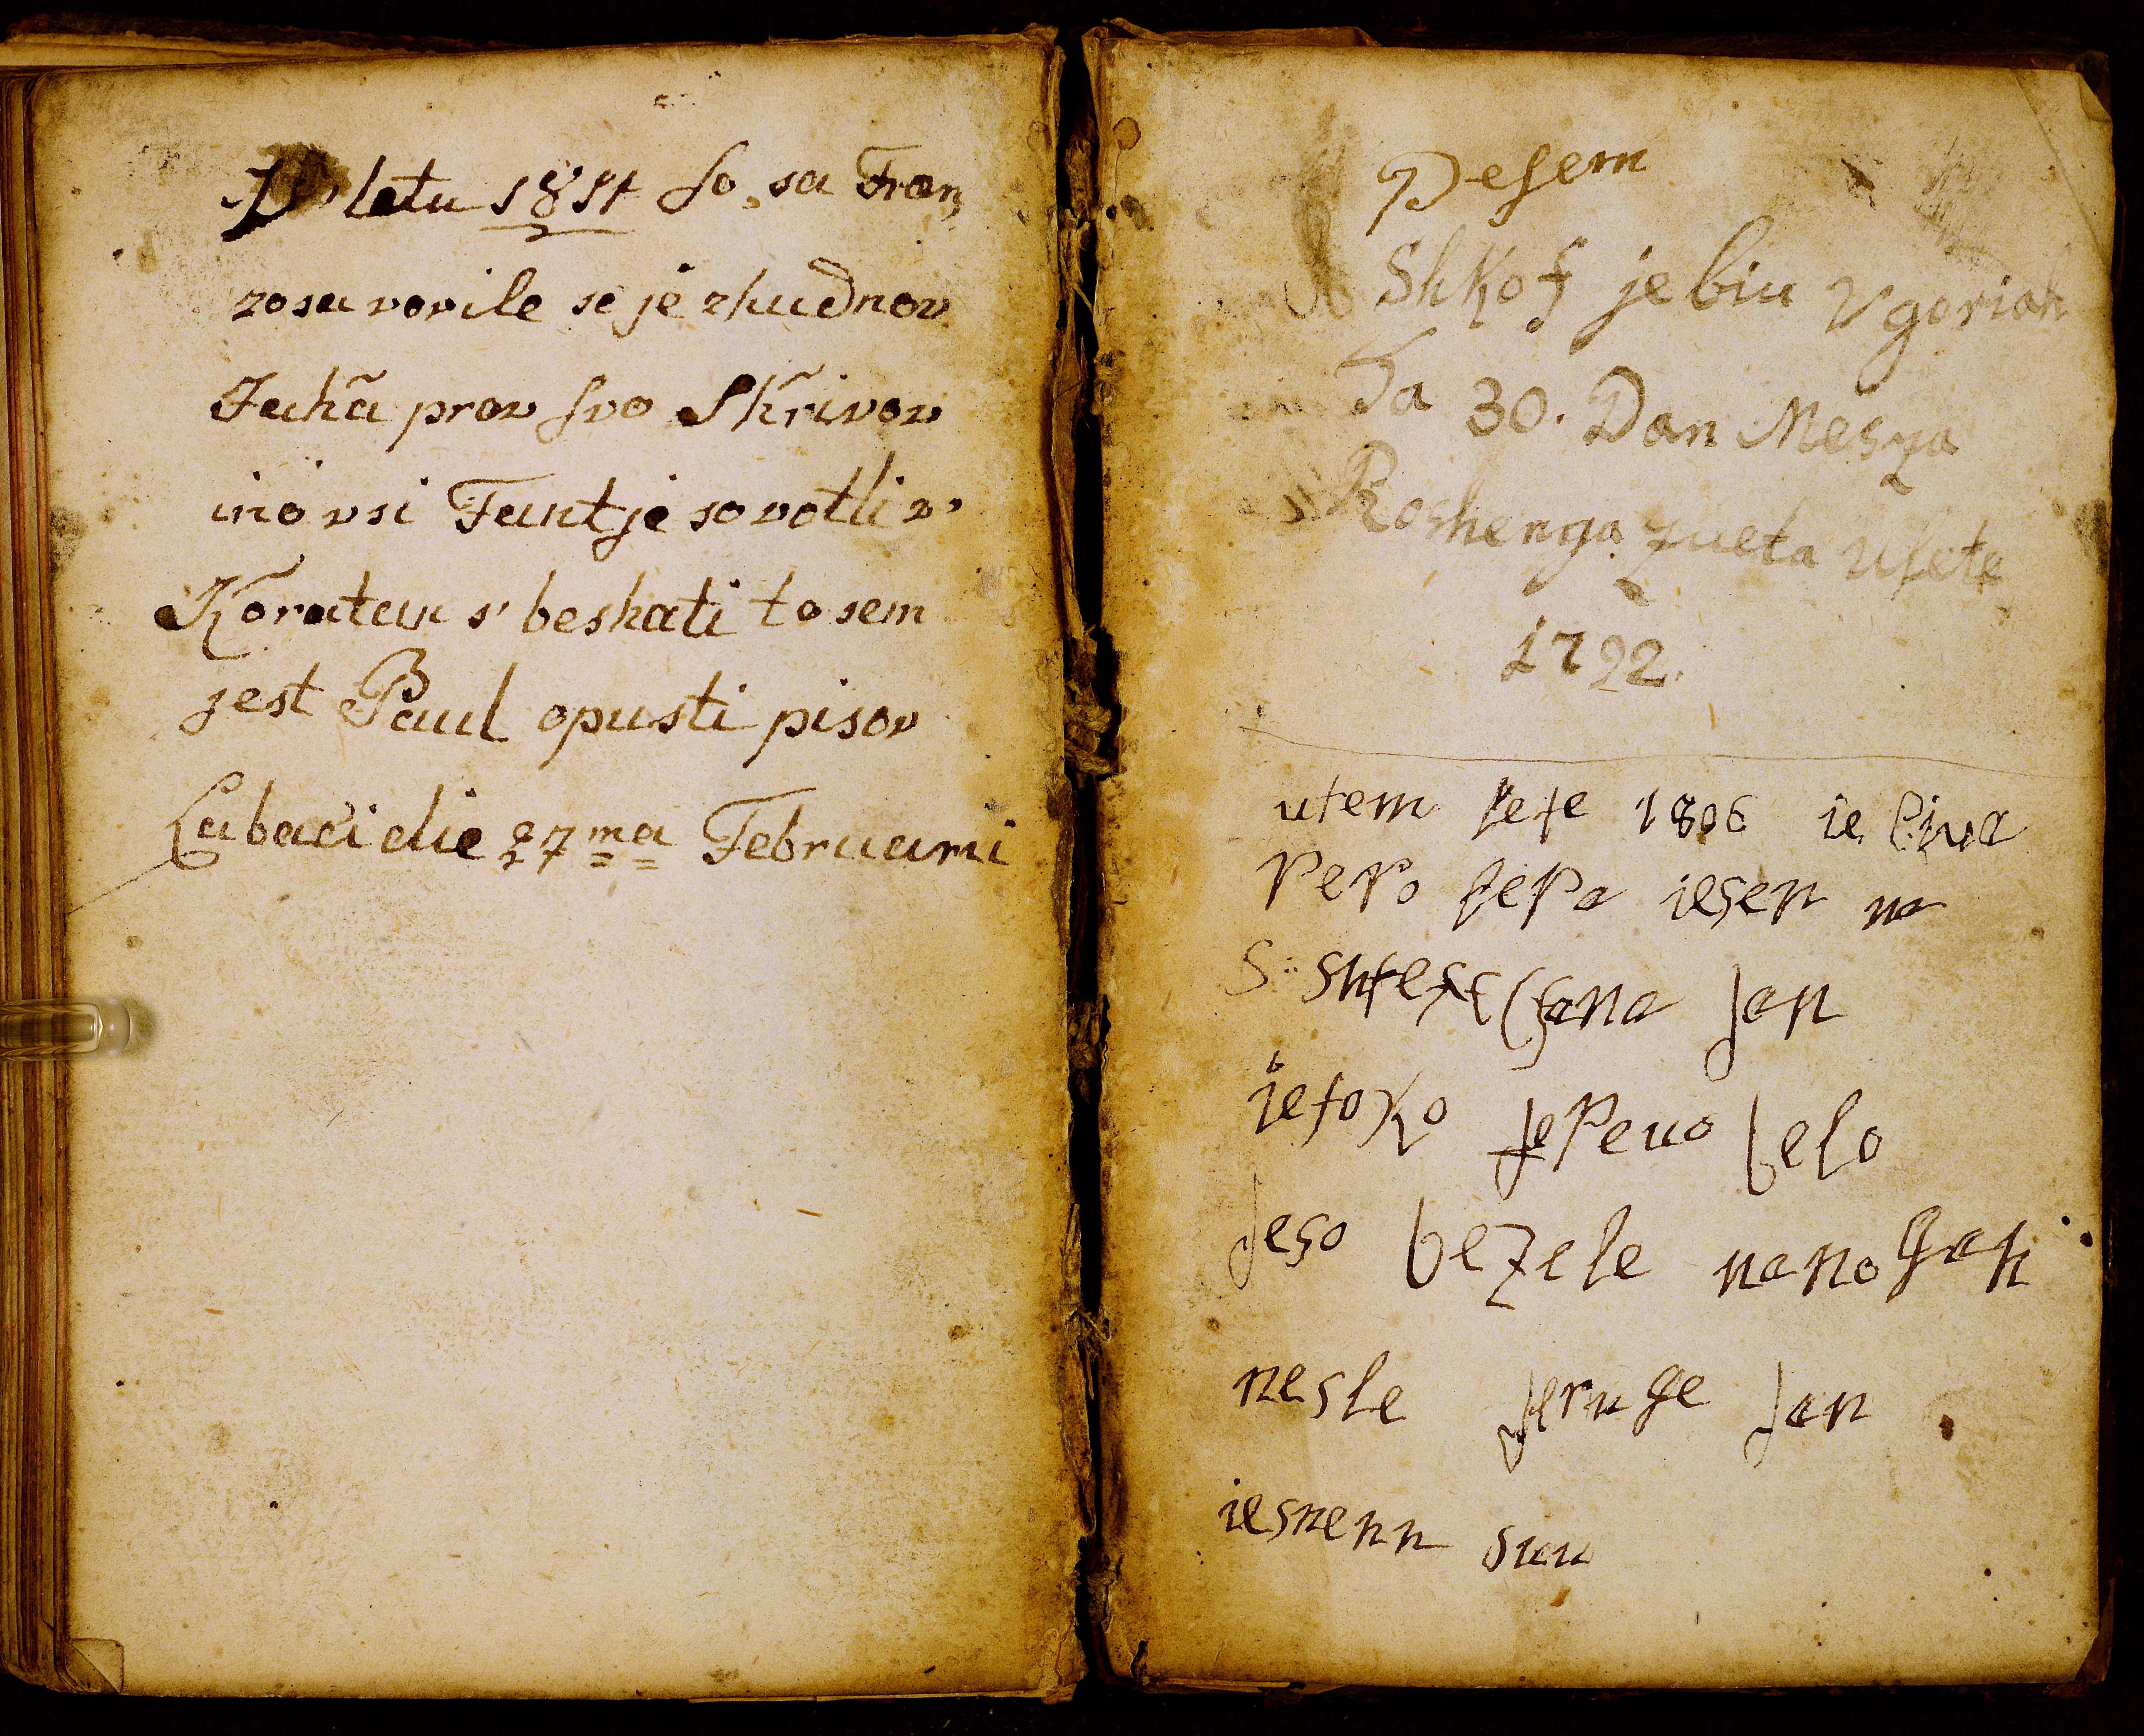 letu 1814 so, sa Fran,
zosa vovile se je zhudnov
Jakã prov svo Skrivov
ino vsi Fantje so votli v'
Koratan s' beshati to sem
jest Paul opusti pisov
Labaci die 27ma Februarii
Pesem
Shkof je biu v goriah
Ta 30. Dan Mesza
Roshenga zueta Uleta
1792.
utem lete 1806 ie biva
pero lepa iesen na
S: shte fana dan
ie toko lepeuo belo
deso bezele na pashah
nesle druge dan
iesnenu suu